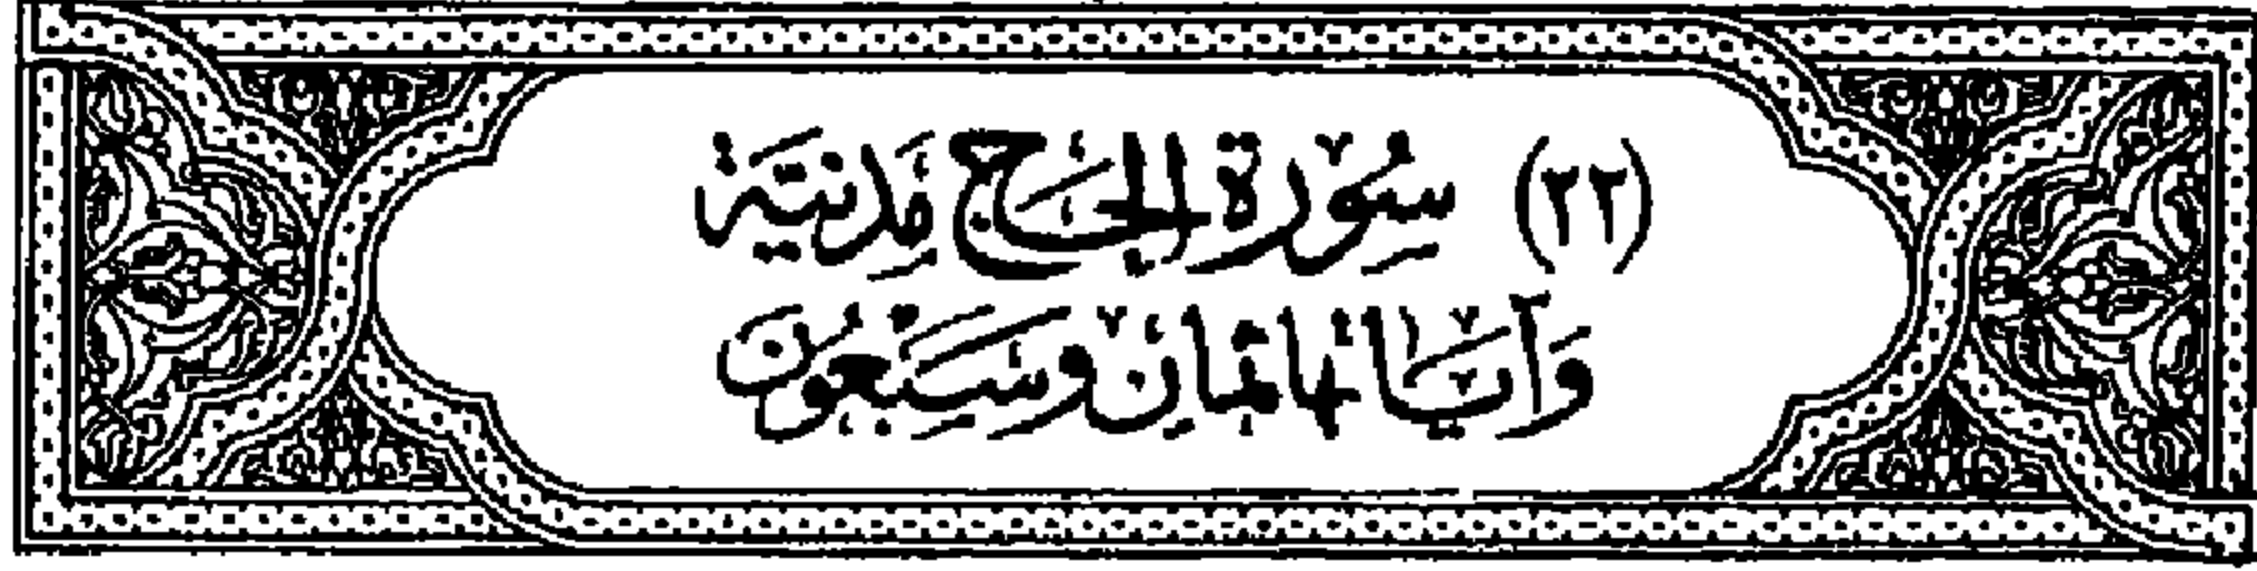 (٢٢) سُوْرَةِ الحَجّ مَدنيَّةٌ
وَآيَاتُهَا ثَمَانٍ وَسَبْعُونَ